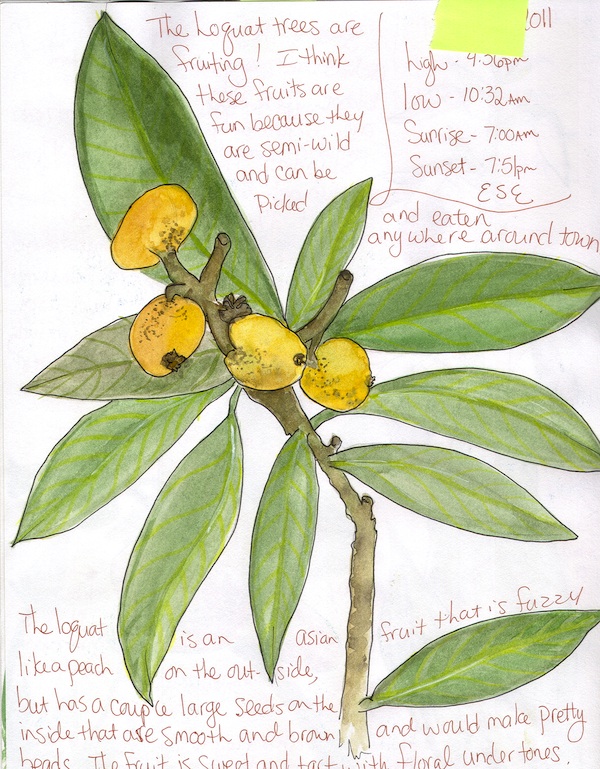 The Loquat trees are
fruiting! I think
these fruits are
fun because they
are semi-wild
and can be
Picked
and eaten
anywhere around town
2011
high - 4:56pm
low - 10:32am
Sunrise - 7:00am
Sunset - 7:51pm
ESE
The loquat is an asian fruit that is fuzzy
like a peach on the out-side,
but has a couple large seeds on the
inside that are smooth and brown and would make pretty
beads. The fruit is sweet and tart with floral undertones.